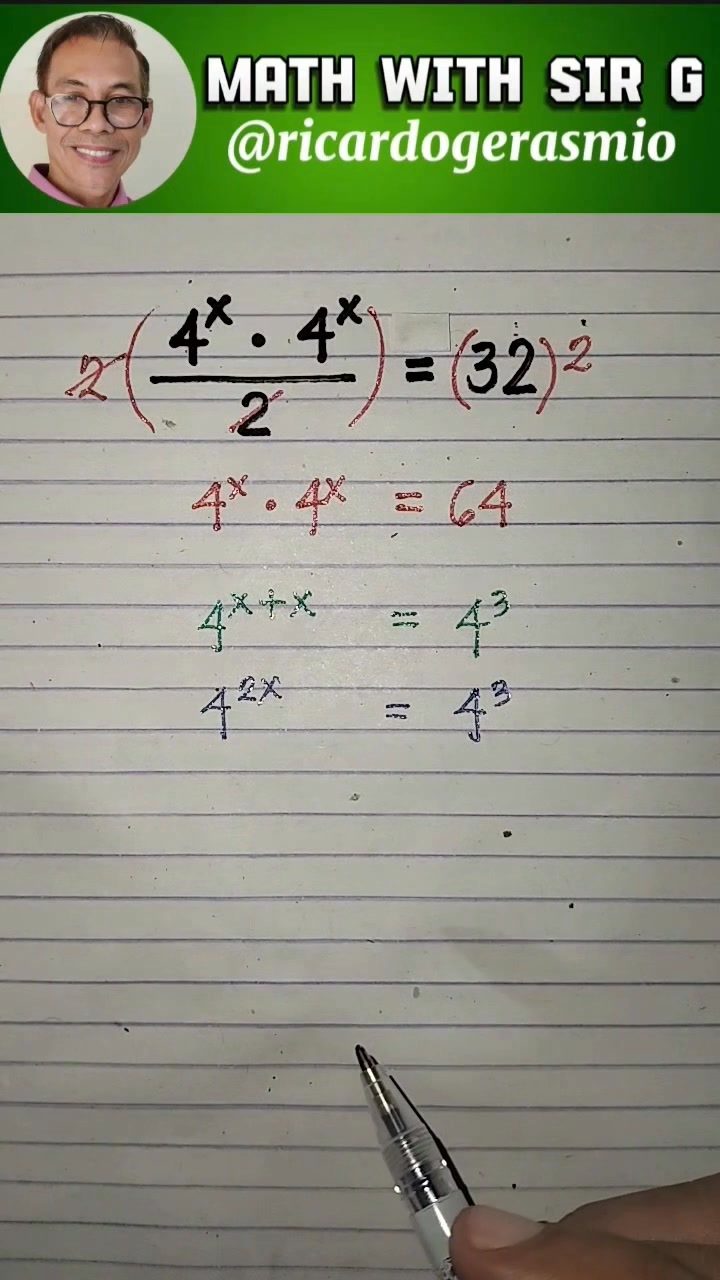 MATH WITH SIR G
@ricardogerasmio
2(4^x · 4^x / 2) = (32)2
4^x · 4^x = 64
4^(x+x) = 4^3
4^(2x) = 4^3